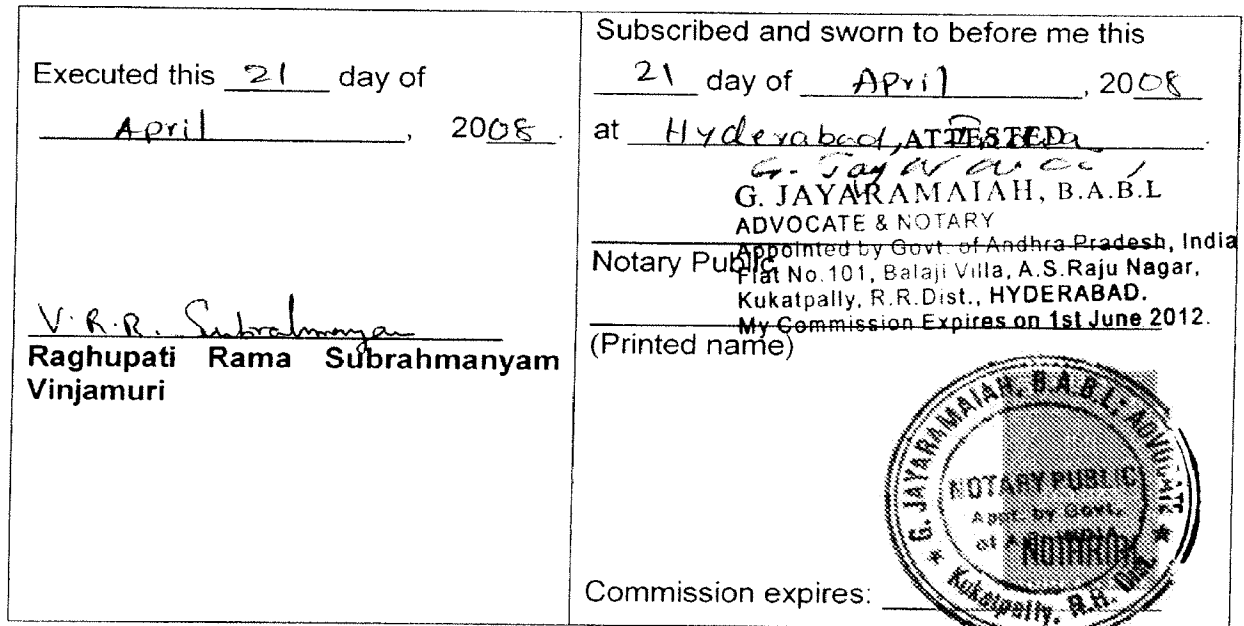 Executed this 21 day of
April, 2008.
V.R.R. Subrahmanyam
Raghupati Rama Subrahmanyam
Vinjamuri
Subscribed and sworn to before me this
21 day of April, 2008
at Hyderabad, India.
ATTESTED
G. Jayaramaiah
G. JAYARAMAIAH, B.A.B.L
ADVOCATE & NOTARY
Appointed by Govt. of Andhra Pradesh, India
Notary Public
Flat No.101, Balaji Villa, A.S.Raju Nagar,
Kukatpally, R.R.Dist., HYDERABAD.
My Commission Expires on 1st June 2012.
(Printed name)
G. JAYARAMAIAH, B.A.B.L; ADVOCATE
NOTARY PUBLIC
Appt. by Govt.
of INDIA
Kukatpally, R.R. Dist.
Commission expires: